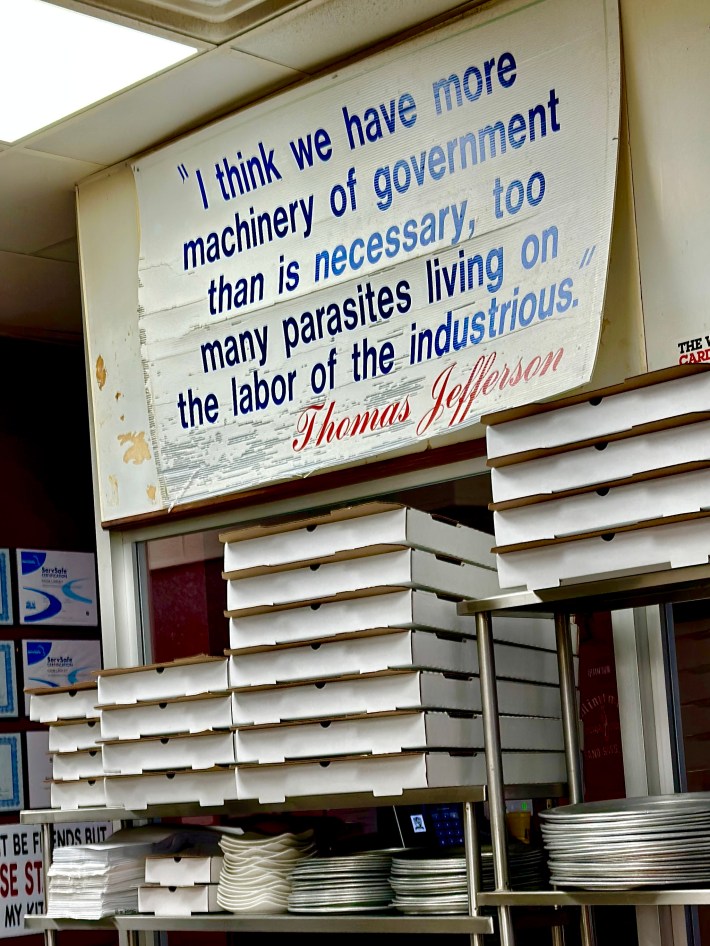 "I think we have more
machinery of government
than is necessary, too
many parasites living on
the labor of the industrious."
Thomas Jefferson
THE
CARD
ServSafe
CERTIFICATION
ServSafe
CERTIFICATION
T BE FR ENDS BUT
SE ST
MY KIT